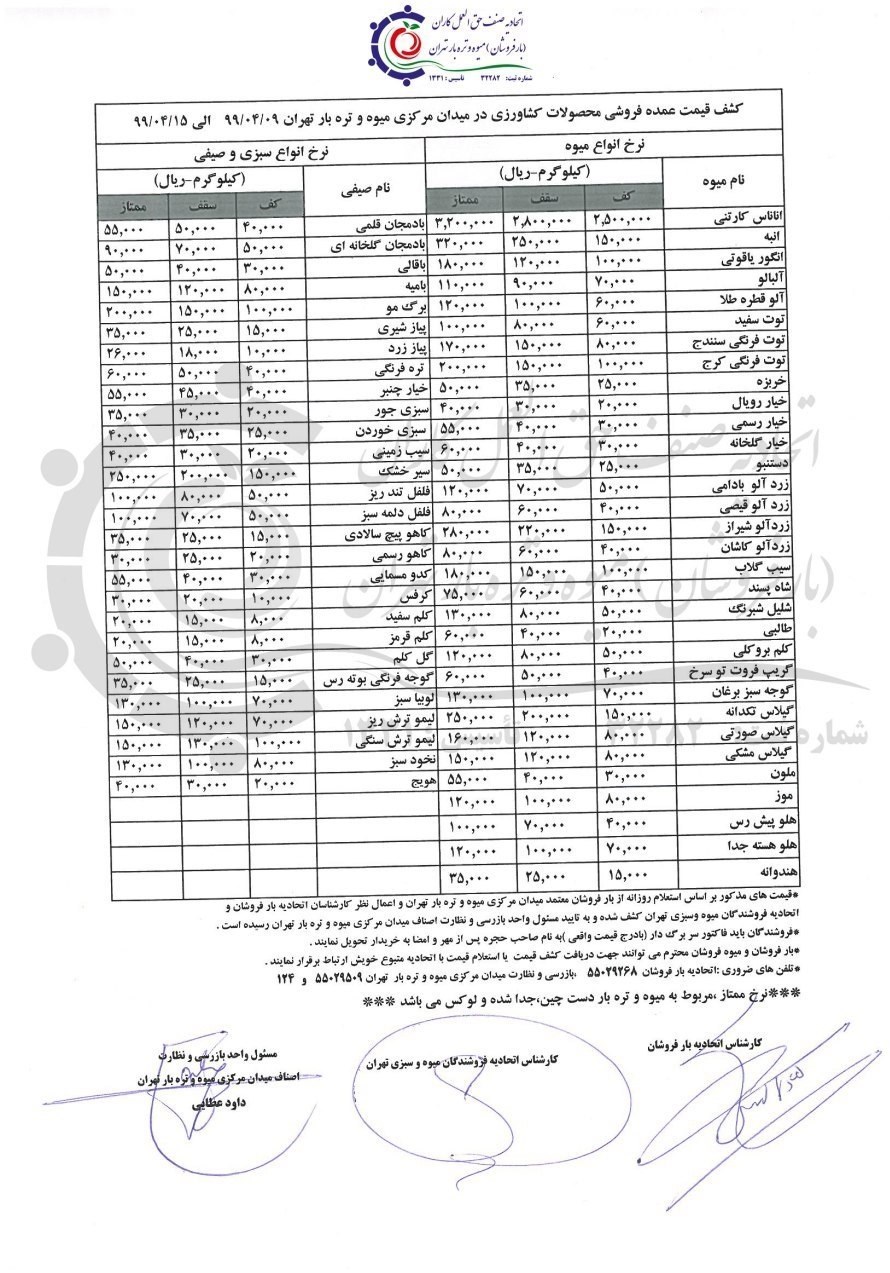 اتحادیه صنف حق العمل کاران
(بارفروشان) میوه و تره بار تهران
شماره ثبت: ۳۲۲۸۲ تاسیس: ۱۳۳۱
کشف قیمت عمده فروشی محصولات کشاورزی در میدان مرکزی میوه و تره بار تهران ۹۹/۰۴/۰۹ الی ۹۹/۰۴/۱۵
نرخ انواع میوه نرخ انواع سبزی و صیفی
نام میوه (کیلوگرم-ریال) نام صیفی (کیلوگرم-ریال)
کف سقف ممتاز کف سقف ممتاز
اناناس کارتنی ۲,۵۰۰,۰۰۰ ۲,۸۰۰,۰۰۰ ۳,۲۰۰,۰۰۰ بادمجان قلمی ۴۰,۰۰۰ ۵۰,۰۰۰ ۵۵,۰۰۰
انبه ۱۵۰,۰۰۰ ۲۵۰,۰۰۰ ۳۲۰,۰۰۰ بادمجان گلخانه ای ۵۰,۰۰۰ ۷۰,۰۰۰ ۹۰,۰۰۰
انگور یاقوتی ۱۰۰,۰۰۰ ۱۲۰,۰۰۰ ۱۸۰,۰۰۰ باقالی ۳۰,۰۰۰ ۴۰,۰۰۰ ۵۰,۰۰۰
آلبالو ۷۰,۰۰۰ ۹۰,۰۰۰ ۱۱۰,۰۰۰ بامیه ۸۰,۰۰۰ ۱۲۰,۰۰۰ ۱۵۰,۰۰۰
آلو قطره طلا ۶۰,۰۰۰ ۱۰۰,۰۰۰ ۱۲۰,۰۰۰ برگ مو ۱۰۰,۰۰۰ ۱۵۰,۰۰۰ ۲۰۰,۰۰۰
توت سفید ۶۰,۰۰۰ ۸۰,۰۰۰ ۱۰۰,۰۰۰ پیاز شیری ۱۵,۰۰۰ ۲۵,۰۰۰ ۳۵,۰۰۰
توت فرنگی سنندج ۸۰,۰۰۰ ۱۵۰,۰۰۰ ۱۷۰,۰۰۰ پیاز زرد ۱۰,۰۰۰ ۱۸,۰۰۰ ۲۶,۰۰۰
توت فرنگی کرج ۱۰۰,۰۰۰ ۱۵۰,۰۰۰ ۲۰۰,۰۰۰ تره فرنگی ۴۰,۰۰۰ ۵۰,۰۰۰ ۶۰,۰۰۰
خربزه ۲۵,۰۰۰ ۳۵,۰۰۰ ۵۰,۰۰۰ خیار چنبر ۴۰,۰۰۰ ۴۵,۰۰۰ ۵۵,۰۰۰
خیار رویال ۲۰,۰۰۰ ۳۰,۰۰۰ ۴۰,۰۰۰ سبزی جور ۲۰,۰۰۰ ۳۰,۰۰۰ ۳۵,۰۰۰
خیار رسمی ۳۰,۰۰۰ ۴۰,۰۰۰ ۵۵,۰۰۰ سبزی خوردن ۲۵,۰۰۰ ۳۵,۰۰۰ ۴۰,۰۰۰
خیار گلخانه ۳۰,۰۰۰ ۴۰,۰۰۰ ۶۰,۰۰۰ سیب زمینی ۲۰,۰۰۰ ۳۰,۰۰۰ ۴۰,۰۰۰
دستنبو ۲۵,۰۰۰ ۳۵,۰۰۰ ۵۰,۰۰۰ سیر خشک ۱۵۰,۰۰۰ ۲۰۰,۰۰۰ ۲۵۰,۰۰۰
زرد آلو بادامی ۵۰,۰۰۰ ۷۰,۰۰۰ ۱۲۰,۰۰۰ فلفل تند ریز ۵۰,۰۰۰ ۸۰,۰۰۰ ۱۰۰,۰۰۰
زرد آلو قیصی ۴۰,۰۰۰ ۶۰,۰۰۰ ۸۰,۰۰۰ فلفل دلمه سبز ۵۰,۰۰۰ ۷۰,۰۰۰ ۱۰۰,۰۰۰
زردآلو شیراز ۱۵۰,۰۰۰ ۲۲۰,۰۰۰ ۲۸۰,۰۰۰ کاهو پیچ سالادی ۱۵,۰۰۰ ۲۵,۰۰۰ ۳۵,۰۰۰
زردآلو کاشان ۴۰,۰۰۰ ۶۰,۰۰۰ ۸۰,۰۰۰ کاهو رسمی ۲۰,۰۰۰ ۲۵,۰۰۰ ۳۰,۰۰۰
سیب گلاب ۱۰۰,۰۰۰ ۱۵۰,۰۰۰ ۱۸۰,۰۰۰ کدو مسمایی ۳۰,۰۰۰ ۴۰,۰۰۰ ۵۵,۰۰۰
شاه پسند ۴۰,۰۰۰ ۶۰,۰۰۰ ۷۵,۰۰۰ کرفس ۱۰,۰۰۰ ۲۰,۰۰۰ ۳۰,۰۰۰
شلیل شبرنگ ۵۰,۰۰۰ ۸۰,۰۰۰ ۱۳۰,۰۰۰ کلم سفید ۸,۰۰۰ ۱۵,۰۰۰ ۲۰,۰۰۰
طالبی ۲۰,۰۰۰ ۴۰,۰۰۰ ۶۰,۰۰۰ کلم قرمز ۸,۰۰۰ ۱۵,۰۰۰ ۲۰,۰۰۰
کلم بروکلی ۵۰,۰۰۰ ۸۰,۰۰۰ ۱۲۰,۰۰۰ گل کلم ۳۰,۰۰۰ ۴۰,۰۰۰ ۵۰,۰۰۰
گریپ فروت تو سرخ ۴۰,۰۰۰ ۵۰,۰۰۰ ۶۰,۰۰۰ گوجه فرنگی بوته رس ۱۵,۰۰۰ ۲۵,۰۰۰ ۳۵,۰۰۰
گوجه سبز برغان ۷۰,۰۰۰ ۱۰۰,۰۰۰ ۱۳۰,۰۰۰ لوبیا سبز ۷۰,۰۰۰ ۱۰۰,۰۰۰ ۱۳۰,۰۰۰
گیلاس تکدانه ۱۵۰,۰۰۰ ۲۰۰,۰۰۰ ۲۵۰,۰۰۰ لیمو ترش ریز ۷۰,۰۰۰ ۱۲۰,۰۰۰ ۱۵۰,۰۰۰
گیلاس صورتی ۸۰,۰۰۰ ۱۲۰,۰۰۰ ۱۶۰,۰۰۰ لیمو ترش سنگی ۱۰۰,۰۰۰ ۱۳۰,۰۰۰ ۱۵۰,۰۰۰
گیلاس مشکی ۸۰,۰۰۰ ۱۲۰,۰۰۰ ۱۵۰,۰۰۰ نخود سبز ۸۰,۰۰۰ ۱۰۰,۰۰۰ ۱۳۰,۰۰۰
ملون ۳۰,۰۰۰ ۴۰,۰۰۰ ۵۵,۰۰۰ هویج ۲۰,۰۰۰ ۳۰,۰۰۰ ۴۰,۰۰۰
موز ۸۰,۰۰۰ ۱۰۰,۰۰۰ ۱۲۰,۰۰۰
هلو پیش رس ۴۰,۰۰۰ ۷۰,۰۰۰ ۱۰۰,۰۰۰
هلو هسته جدا ۷۰,۰۰۰ ۱۰۰,۰۰۰ ۱۲۰,۰۰۰
هندوانه ۱۵,۰۰۰ ۲۵,۰۰۰ ۳۵,۰۰۰
*قیمت های مذکور بر اساس استعلام روزانه از بار فروشان معتمد میدان مرکزی میوه و تره بار تهران و اعمال نظر کارشناسان اتحادیه بار فروشان و
اتحادیه فروشندگان میوه وسبزی تهران کشف شده و به تایید مسئول واحد بازرسی و نظارت اصناف میدان مرکزی میوه و تره بار تهران رسیده است .
*فروشندگان باید فاکتور سر برگ دار (بادرج قیمت واقعی )به نام صاحب حجره پس از مهر و امضا به خریدار تحویل نمایند .
*بار فروشان و میوه فروشان محترم می توانند جهت دریافت کشف قیمت یا استعلام قیمت با اتحادیه متبوع خویش ارتباط برقرار نمایند .
*تلفن های ضروری :اتحادیه بار فروشان ۵۵۰۲۹۲۶۸ ،بازرسی و نظارت میدان مرکزی میوه و تره بار تهران ۵۵۰۲۹۵۰۹ و ۱۲۴
***نرخ ممتاز ،مربوط به میوه و تره بار دست چین،جدا شده و لوکس می باشد ***
کارشناس اتحادیه بار فروشان
کارشناس اتحادیه فروشندگان میوه و سبزی تهران
مسئول واحد بازرسی و نظارت
اصناف میدان مرکزی میوه و تره بار تهران
داود عطایی